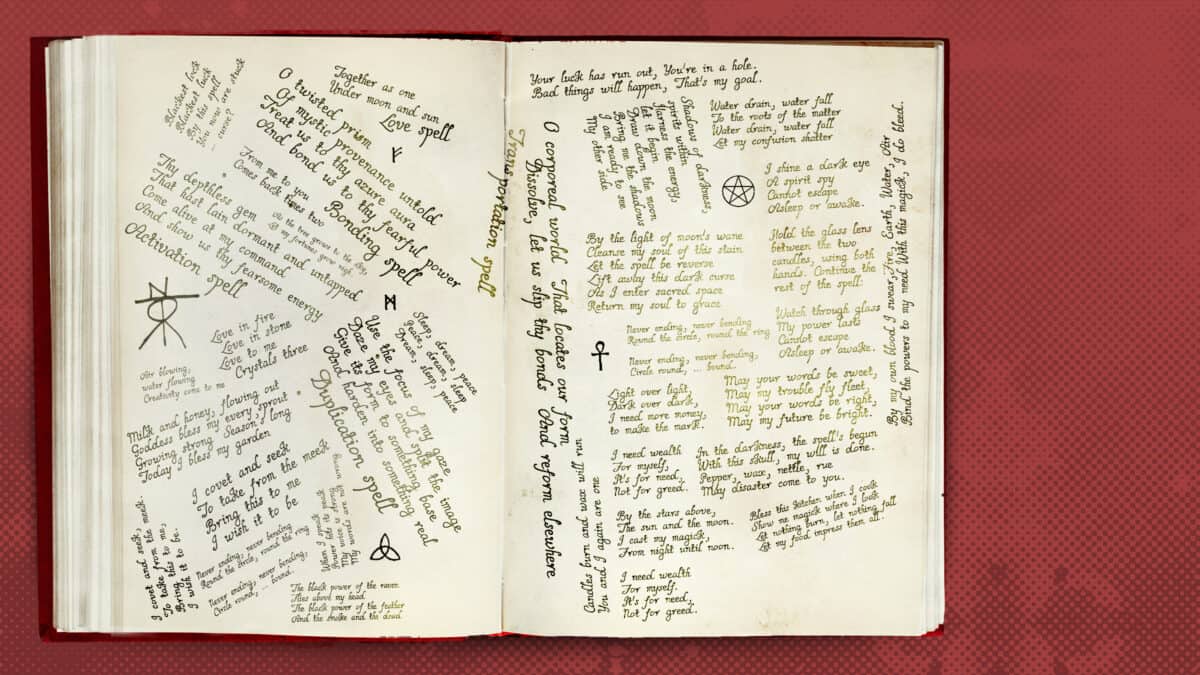 Blackest lock
Blackest luck
By this spell
You now are stuck
curse?
Together as one
Under moon and sun
Love spell
O twisted prism
Of mystic provenance untold
Treat us to thy azure aura
And bond us to thy fearful power
Bonding spell
From me to you
Comes back times two
As the tree grows to the sky,
my fortunes grow high
Thy depthless gem
That hast lain dormant and untapped
Come alive at my command
And show us thy fearsome energy
Activation spell
Love in fire
Love in stone
Love to me
Crystals three
Air blowing,
water flowing
Creativity come to me
Sleep, dream, peace
Peace, dream, sleep
Dream, sleep, peace
Use the focus of my gaze
Daze my eyes and split the image
Give its form to something base
And harden into something real
Duplication spell
Milk and honey, flowing out
Goddess bless my every sprout
Growing strong Season long
Today I bless my garden
I covet and seek
To take from the meek
Bring this to me
I wish it to be
I covet and seek, the meek.
To take from the me,
Bring this to be.
I wish it to be
When I speak
Power lets its mark
My voice is strong
My words are not
Never ending, never bending
Round the circle, round the ring
Never ending, never bending,
Circle round, ... bound.
The black power of the raven
Flies above my head
The black power of the feather
And the snake and the dead
Transportation spell
Your luck has run out, You're in a hole.
Bad things will happen, That's my goal.
O corporeal world That locates our form
Dissolve, let us slip thy bonds And reform elsewhere
Shadows of darkness,
spirits within
Harness the energy,
let it begin
Draw down the moon
Bring me the shadows
I am ready to see
My other side
Water drain, water fall
To the roots of the matter
Water drain, water fall
Let my confusion shatter
I shine a dark eye
A spirit spy
Cannot escape
Asleep or awake.
By the light of moon's wane
Cleanse my soul of this stain
Let the spell be reverse
Lift away this dark curse
As I enter sacred space
Return my soul to grace
Hold the glass lens
between the two
candles, using both
hands. Continue the
rest of the spell:
Watch through glass
My power lasts
Cannot escape
Asleep or awake.
By my own blood I swear, Fire, Earth, Water, Air
Bind the powers to my need With this magick, I do bleed.
Never ending, never bending
Round the circle, round the ring
Never ending, never bending,
Circle round, ... bound.
Light over light,
Dark over dark,
I need more money,
to make the mark.
May your words be sweet,
May my trouble fly fleet,
May your words be right,
May my future be bright.
I need wealth
For myself,
It's for need,
Not for greed.
In the darkness, the spell's begun
With this skull, my will is done.
Pepper, wax, nettle, rue
May disaster come to you.
By the stars above,
The sun and the moon.
I cast my magick,
From night until noon.
Bless this kitchen when I cook
Show me magick where I look
Let nothing burn, let nothing fall
Let my food impress them all.
Candles burn and wax will run
You and I again are one
I need wealth
For myself.
It's for need,
Not for greed.